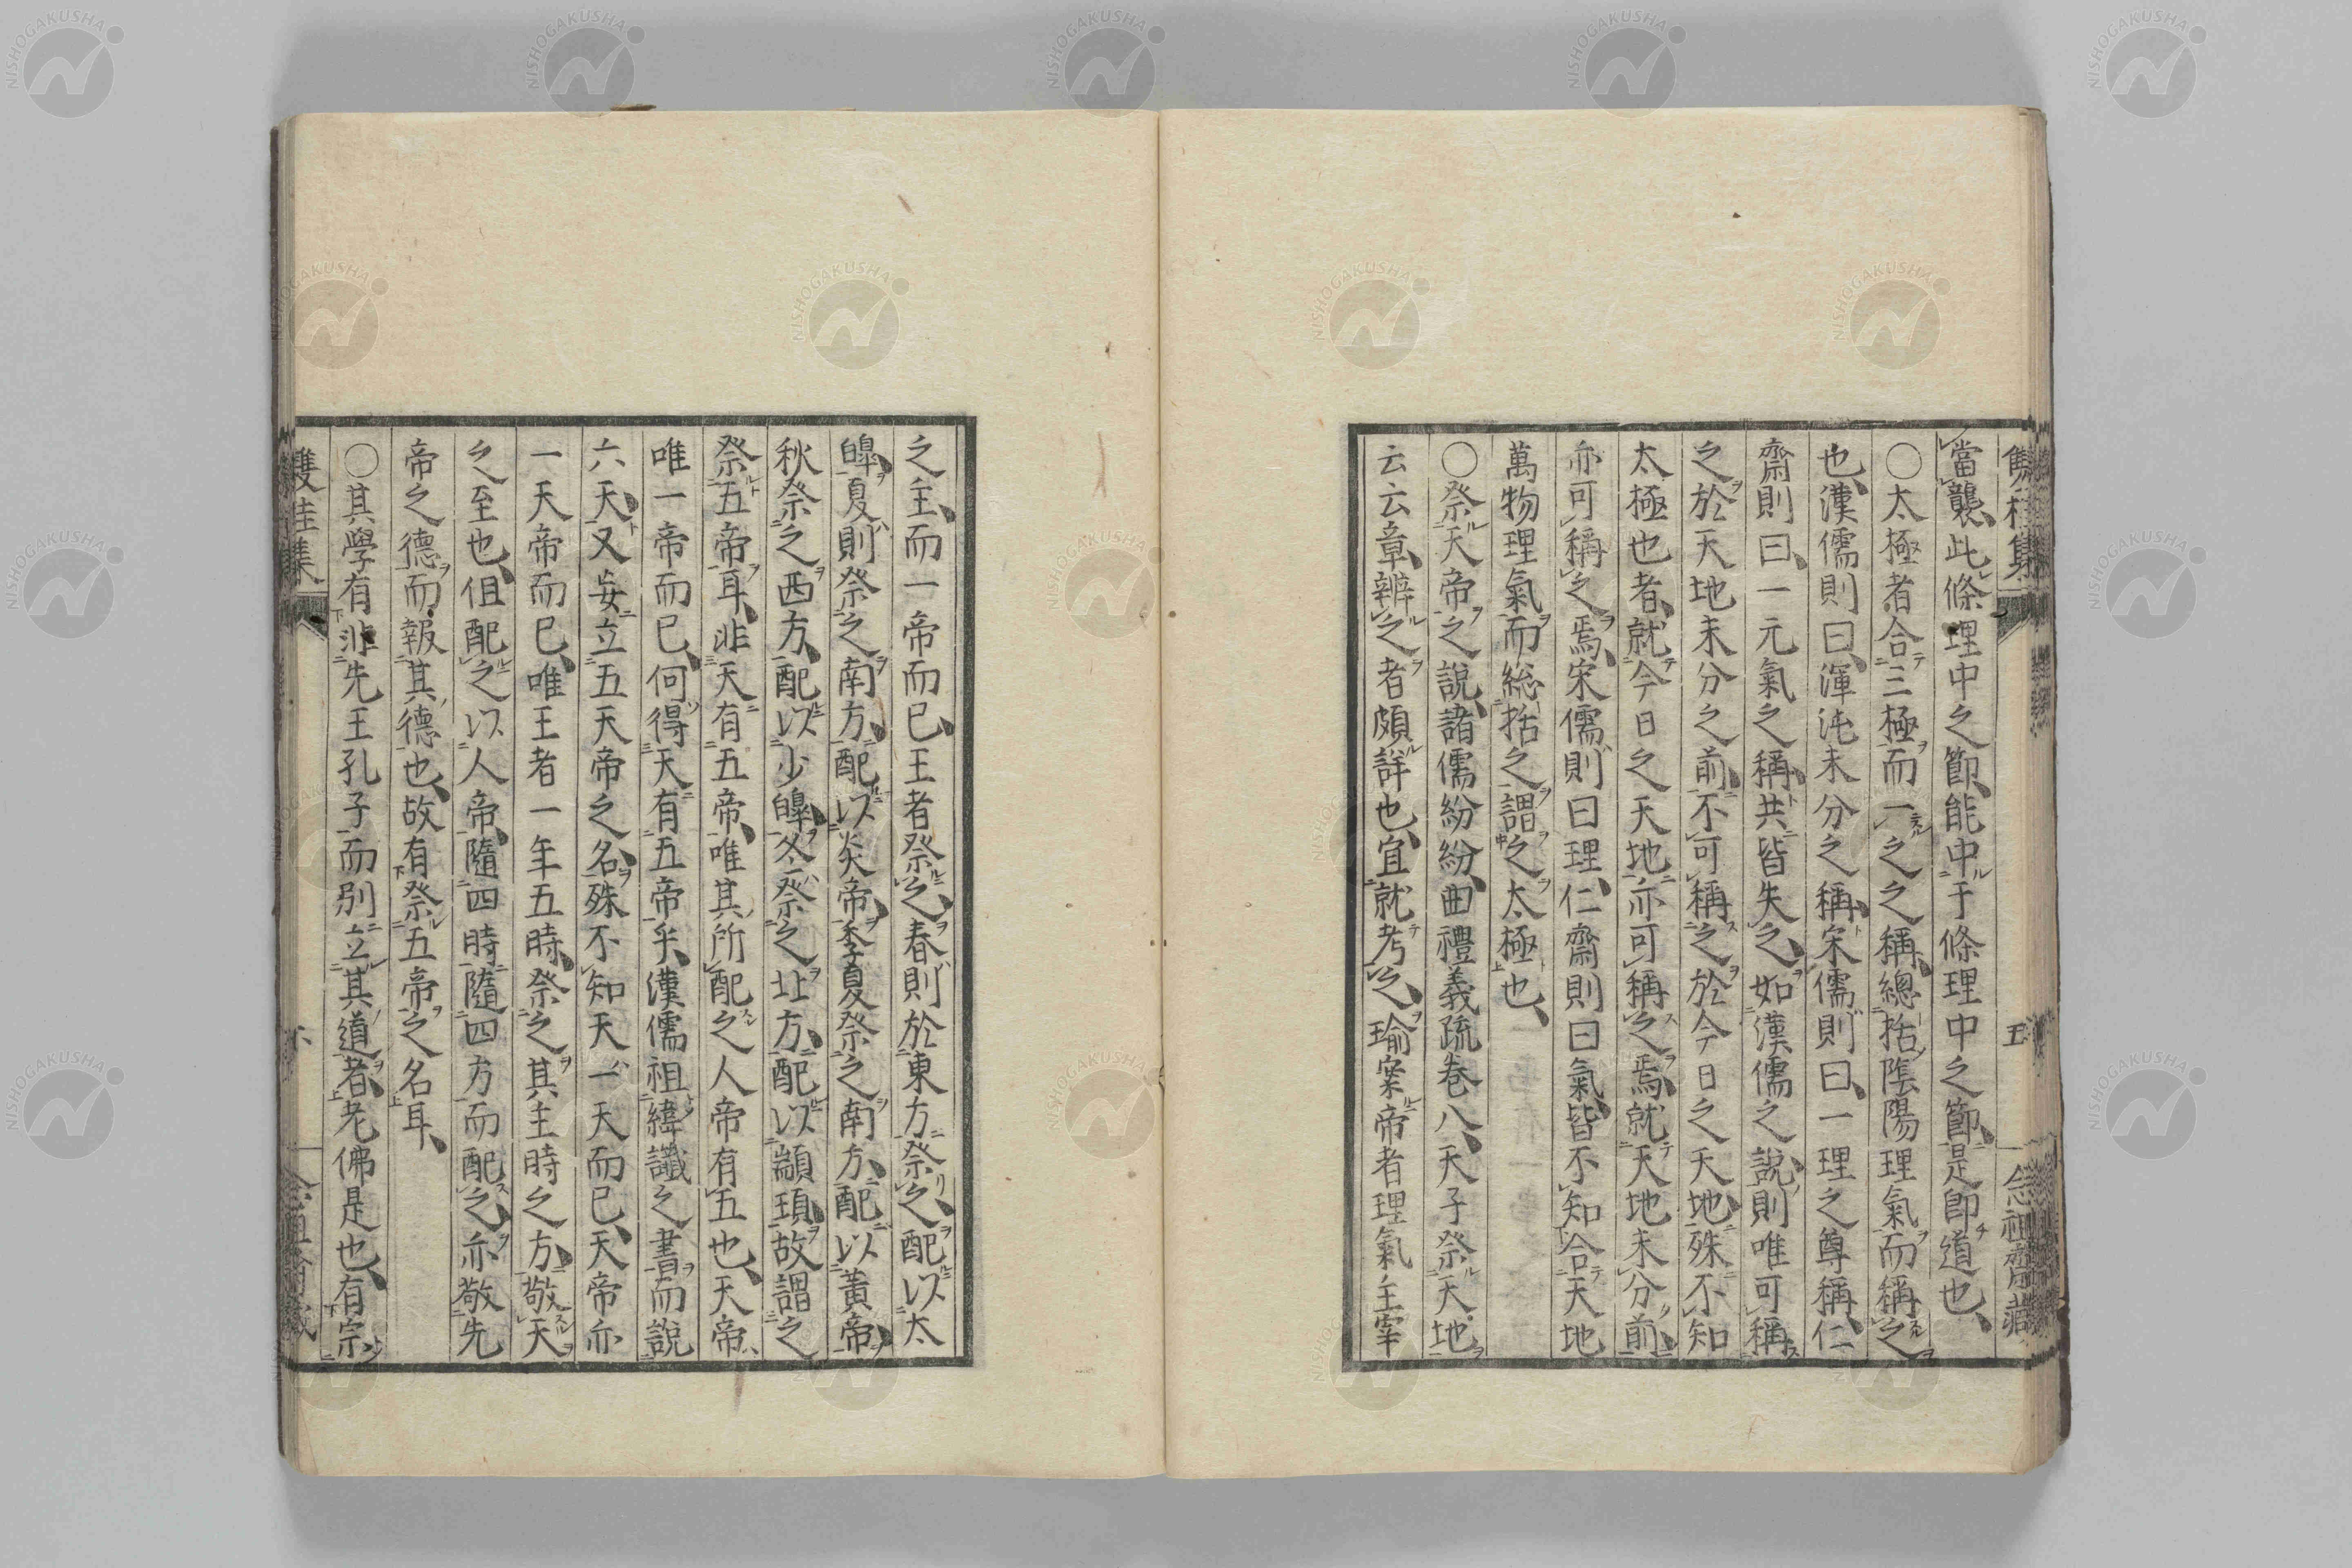 當襲、此條理中之節、能中于條理中之節、是卽道也、
○太極者合三極而一之之稱、總括陰陽理氣而稱之
也、漢儒則曰、渾沌未分之稱、宋儒則曰、一理之尊稱、仁
齋則曰、一元氣之稱、共皆失之、如漢儒之說、則唯可稱
之於天地未分之前、不可稱之於今日之天地、殊不知
太極也者、就今日之天地、亦可稱之焉、就天地未分前、
亦可稱之焉、宋儒則曰理、仁齋則曰氣、皆不知合天地
萬物理氣而総括之、謂之太極也、
○祭天帝之說、諸儒紛紛、曲禮義疏卷八、天子祭天地
云云章、辨之者頗詳也、宜就考之、瑜案帝者理氣主宰
五
念祖齋藏
之主、而一帝而已、王者祭之、春則於東方祭之、配以太
皥、夏則祭之南方、配以炎帝、季夏祭之南方、配以黃帝、
秋祭之西方、配以少皥、冬祭之北方、配以顓頊、故謂之
祭五帝耳、非天有五帝、唯其所配之人帝有五也、天帝
唯一帝而已、何得天有五帝乎、漢儒祖緯讖之書而說
六天、又妄立五天帝之名、殊不知天一天而已、天帝亦
一天帝而已、唯王者一年五時、祭之其主時之方、敬天
之至也、但配之以人帝、隨四時隨四方而配之、亦敬先
帝之德而報其德也、故有祭五帝之名耳、
○其學有非先王孔子而別立其道者、老佛是也、有宗
雙桂集